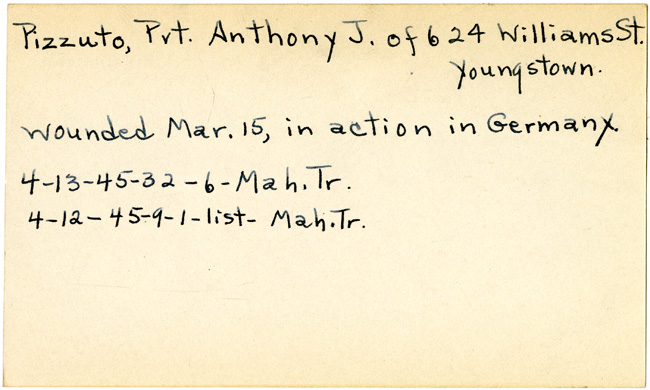 Pizzuto, Pvt. Anthony J. of 624 Williams St.
Youngstown.
wounded Mar. 15, in action in Germany.
4-13-45-32-6-Mah. Tr.
4-12-45-9-1-list- Mah. Tr.